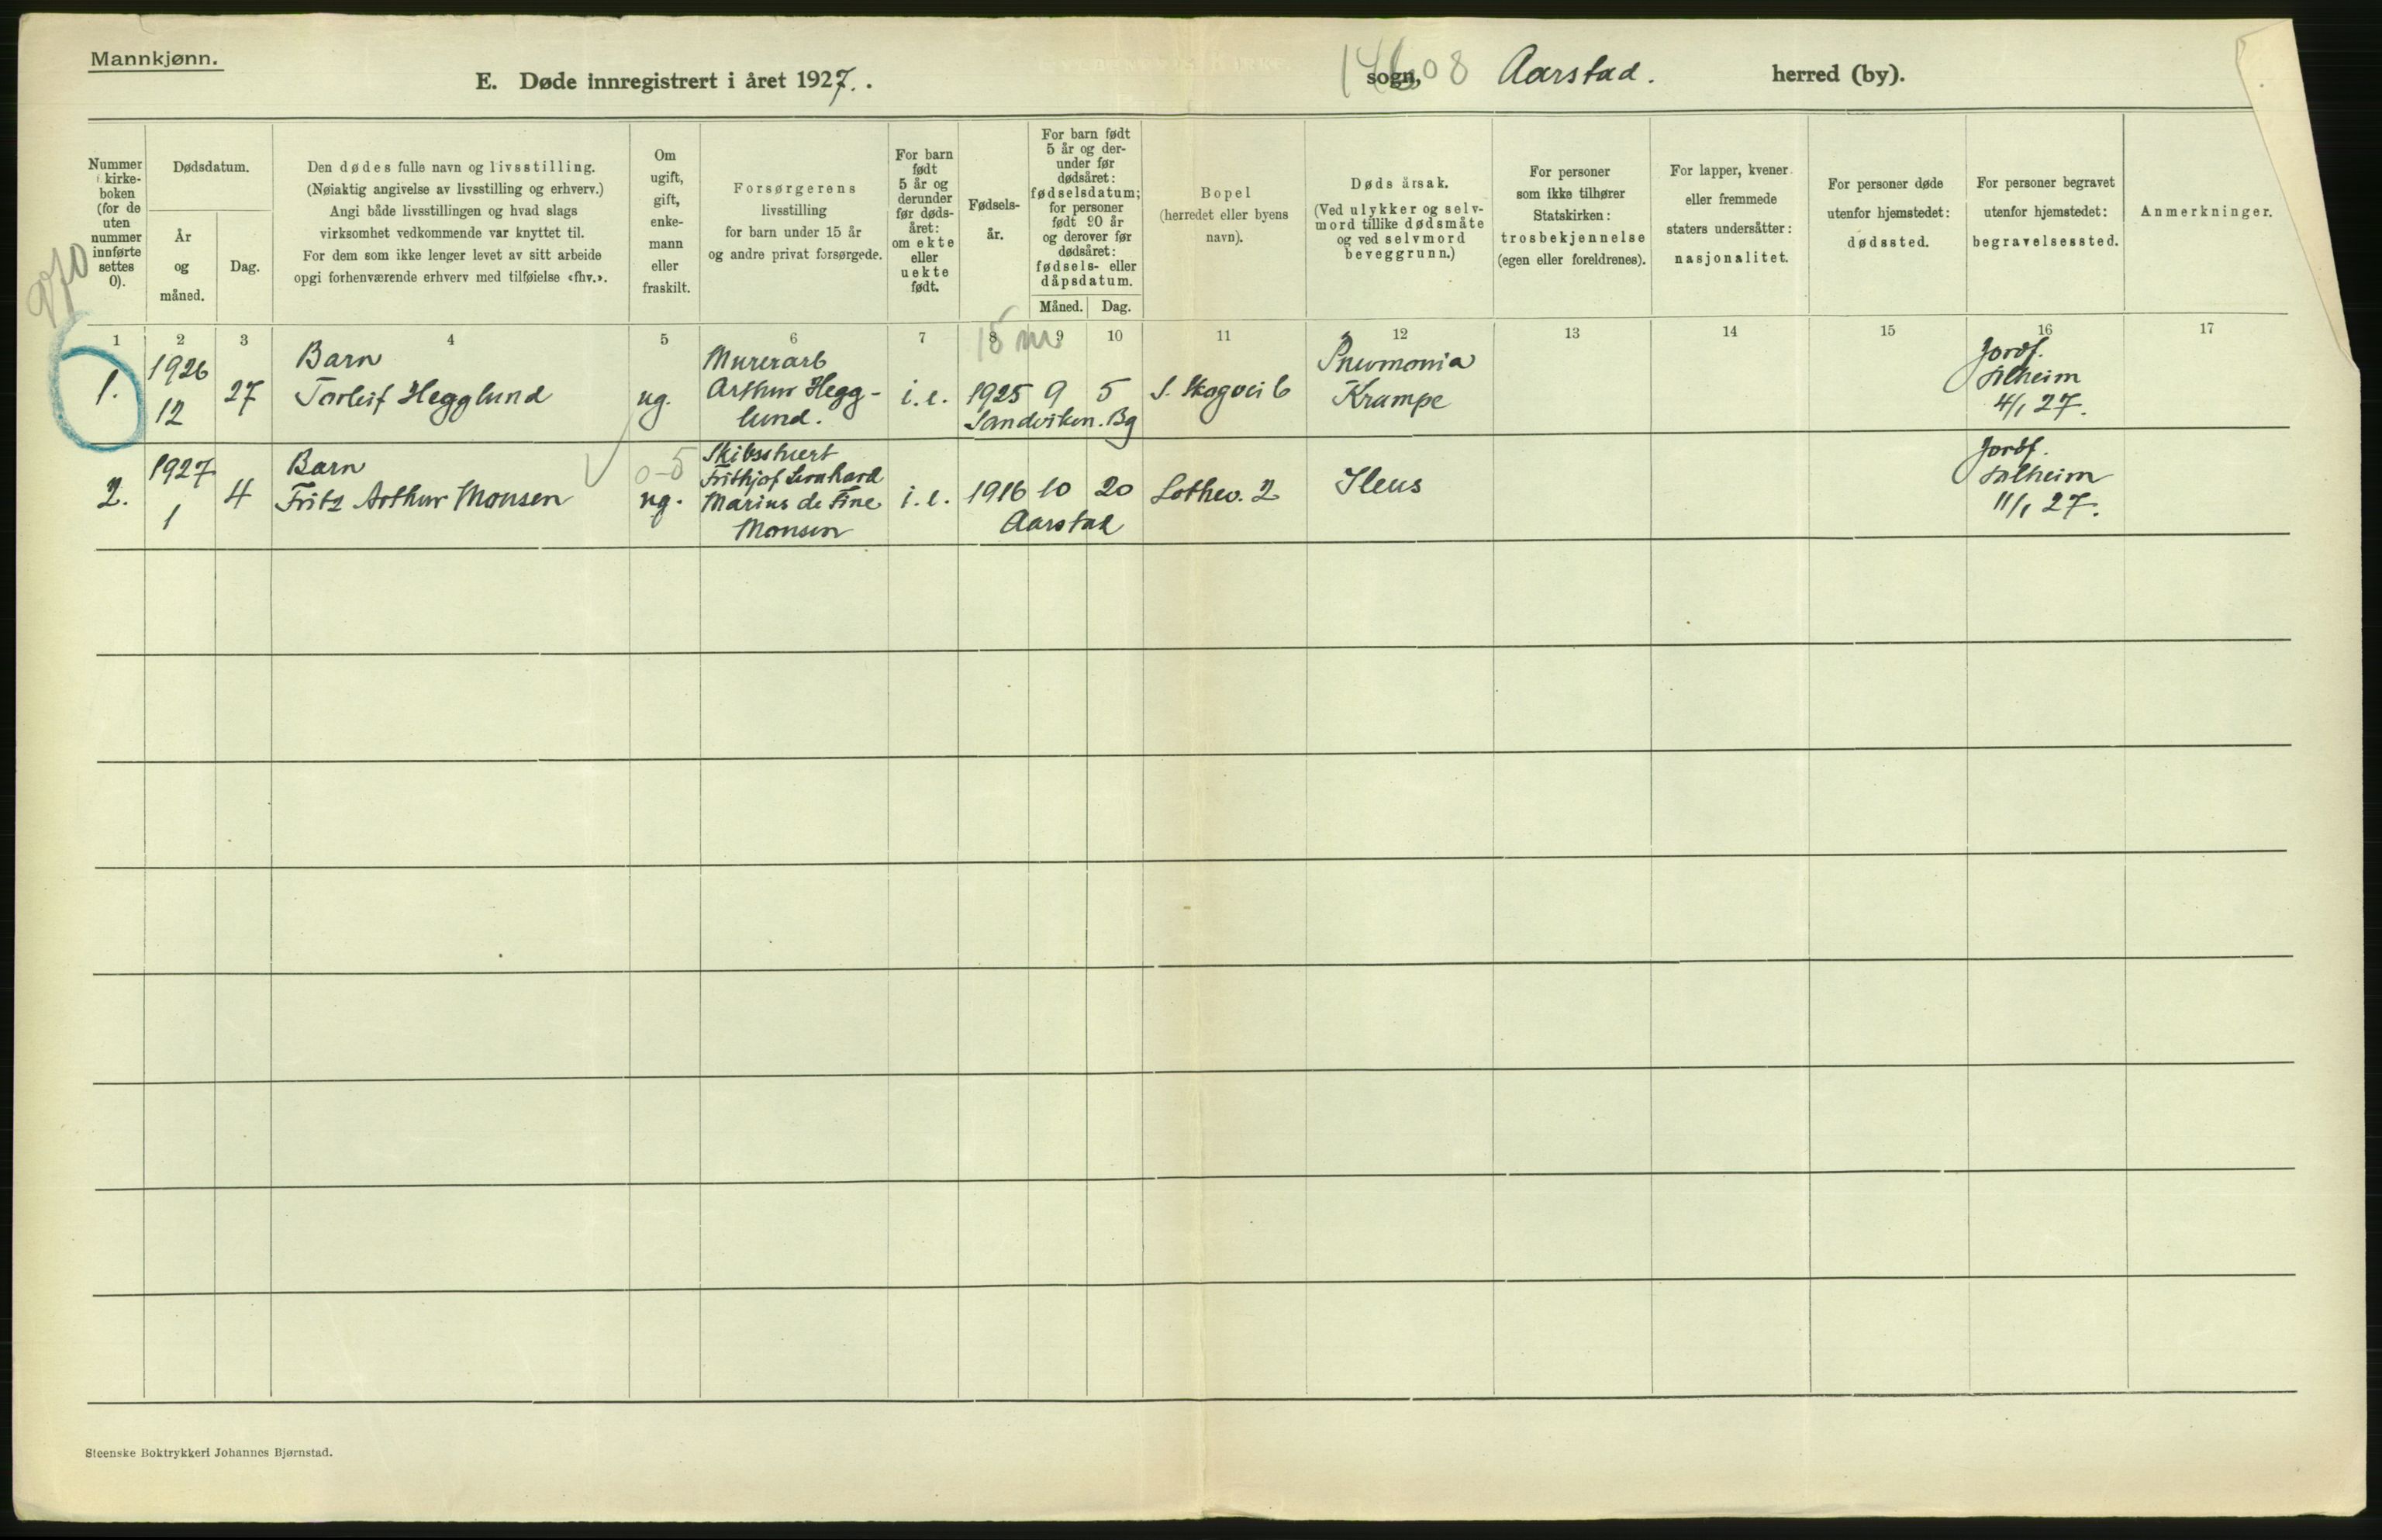 Mannkjønn.
E. Døde innregistrert i året 1927.
sogn, Aarstad. herred (by).
Nummer i kirke-boken (for de uten nummer innførte settes 0).
Dødsdatum.
År og måned.
Dag.
Den dødes fulle navn og livsstilling.
(Nøiaktig angivelse av livsstilling og erhverv.)
Angi både livsstillingen og hvad slags
virksomhet vedkommende var knyttet til.
For dem som ikke lenger levet av sitt arbeide
opgi forhenværende erhverv med tilføielse «fhv.».
Om ugift, gift, enke-mann eller fraskilt.
Forsørgerens
livsstilling
for barn under 15 år
og andre privat forsørgede.
For barn født 5 år og derunder før døds-året: om ekte eller uekte født.
Fødsels-år.
For barn født 5 år og der-under før dødsåret: fødselsdatum; for personer født 90 år og derover før dødsåret: fødsels- eller dåpsdatum.
Måned. Dag.
Bopel
(herredet eller byens
navn).
Dødsårsak.
(Ved ulykker og selv-
mord tillike dødsmåte
og ved selvmord
beveggrunn.)
For personer
som ikke tilhører
Statskirken:
trosbekjennelse
(egen eller foreldrenes).
For lapper, kvener
eller fremmede
staters undersåtter:
nasjonalitet.
For personer døde
utenfor hjemstedet:
dødssted.
For personer begravet
utenfor hjemstedet:
begravelsessted.
Anmerkninger.
1 2 3 4 5 6 7 8 9 10 11 12 13 14 15 16 17
15 m
1.
1926
12
27
Barn
Torleif Hegglund
ug.
Murerarb
Arthur Hegg-
lund.
i.e.
1925 9 5
Sandviken. Bg
S. Skogvei 6
Pneumonia
Krampe
Jordf.
Solheim
4/1 27.
2.
1927
1
4
Barn
Fritz Arthur Monsen
0-5
ug.
Skibsstuert
Frithjof Leonhard
Marius de Fine
Monsen
i.e.
1916 10 20
Aarstad
Lothev. 2
Ileus
Jordf.
Solheim
11/1 27.
Steenske Boktrykkeri Johannes Bjørnstad.